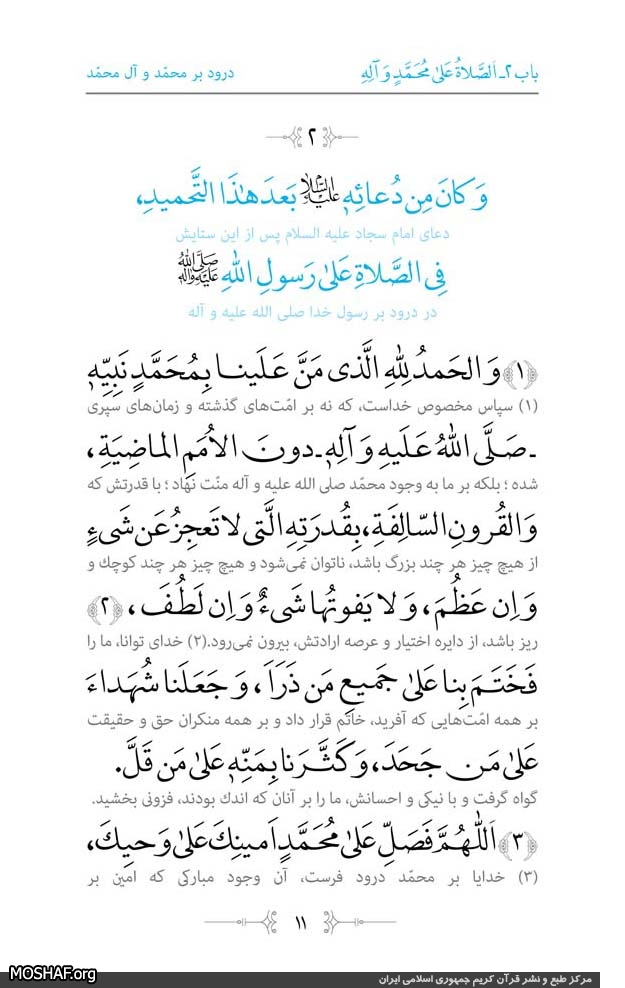 باب ۲ـ اَلصَّلاةُ عَلىٰ مُحَمَّدٍ وَ آلِهِ
درود بر محمّد و آل محمّد
۲
وَ كانَ مِن دُعائِهٖ عَلَيهِ السَّلامُ بَعدَ هٰذَا التَّحميدِ،
دعای امام سجاد علیه السلام پس از این ستایش
فِی الصَّلاةِ عَلىٰ رَسولِ اللّٰهِ صَلَّى اللّٰهُ عَلَيهِ وَ آلِهِ
در درود بر رسول خدا صلی الله علیه و آله
﴿۱﴾ وَ الحَمدُ لِلّٰهِ الَّذی مَنَّ عَلَينا بِمُحَمَّدٍ نَبِيِّهٖ
(۱) سپاس مخصوص خداست، که نه بر امّت‌های گذشته و زمان‌های سپری
ـ صَلَّى اللّٰهُ عَلَيهِ وَ آلِهٖ ـ دونَ الاُمَمِ الماضِيَةِ،
شده ؛ بلکه بر ما به وجود محمّد صلی الله علیه و آله منّت نهاد ؛ با قدرتش که
وَ القُرونِ السّالِفَةِ، بِقُدرَتِهِ الَّتی لا تَعجِزُ عَن شَیءٍ
از هیچ چیز هر چند بزرگ باشد، ناتوان نمی‌شود و هیچ چیز هر چند کوچك و
وَ اِن عَظُمَ، وَ لا يَفوتُها شَیءٌ وَ اِن لَطُفَ، ﴿۲﴾
ریز باشد، از دایره اختیار و عرصه ارادتش، بیرون نمی‌رود.(۲) خدای توانا، ما را
فَخَتَمَ بِنا عَلىٰ جَميعِ مَن ذَرَاَ، وَ جَعَلَنا شُهَداءَ
بر همه امّت‌هایی که آفرید، خاتم قرار داد و بر همه منکران حق و حقیقت
عَلىٰ مَن جَحَدَ، وَ كَثَّرَنا بِمَنِّهٖ عَلىٰ مَن قَلَّ.
گواه گرفت و با نیکی و احسانش، ما را بر آنان که اندك بودند، فزونی بخشید.
﴿۳﴾ اَللّٰهُمَّ فَصَلِّ عَلىٰ مُحَمَّدٍ اَمينِكَ عَلىٰ وَحيِكَ،
(۳) خدایا بر محمّد درود فرست، آن وجود مبارکی که امین بر
۱۱
مرکز طبع و نشر قرآن کریم جمهوری اسلامی ایران
MOSHAF.org